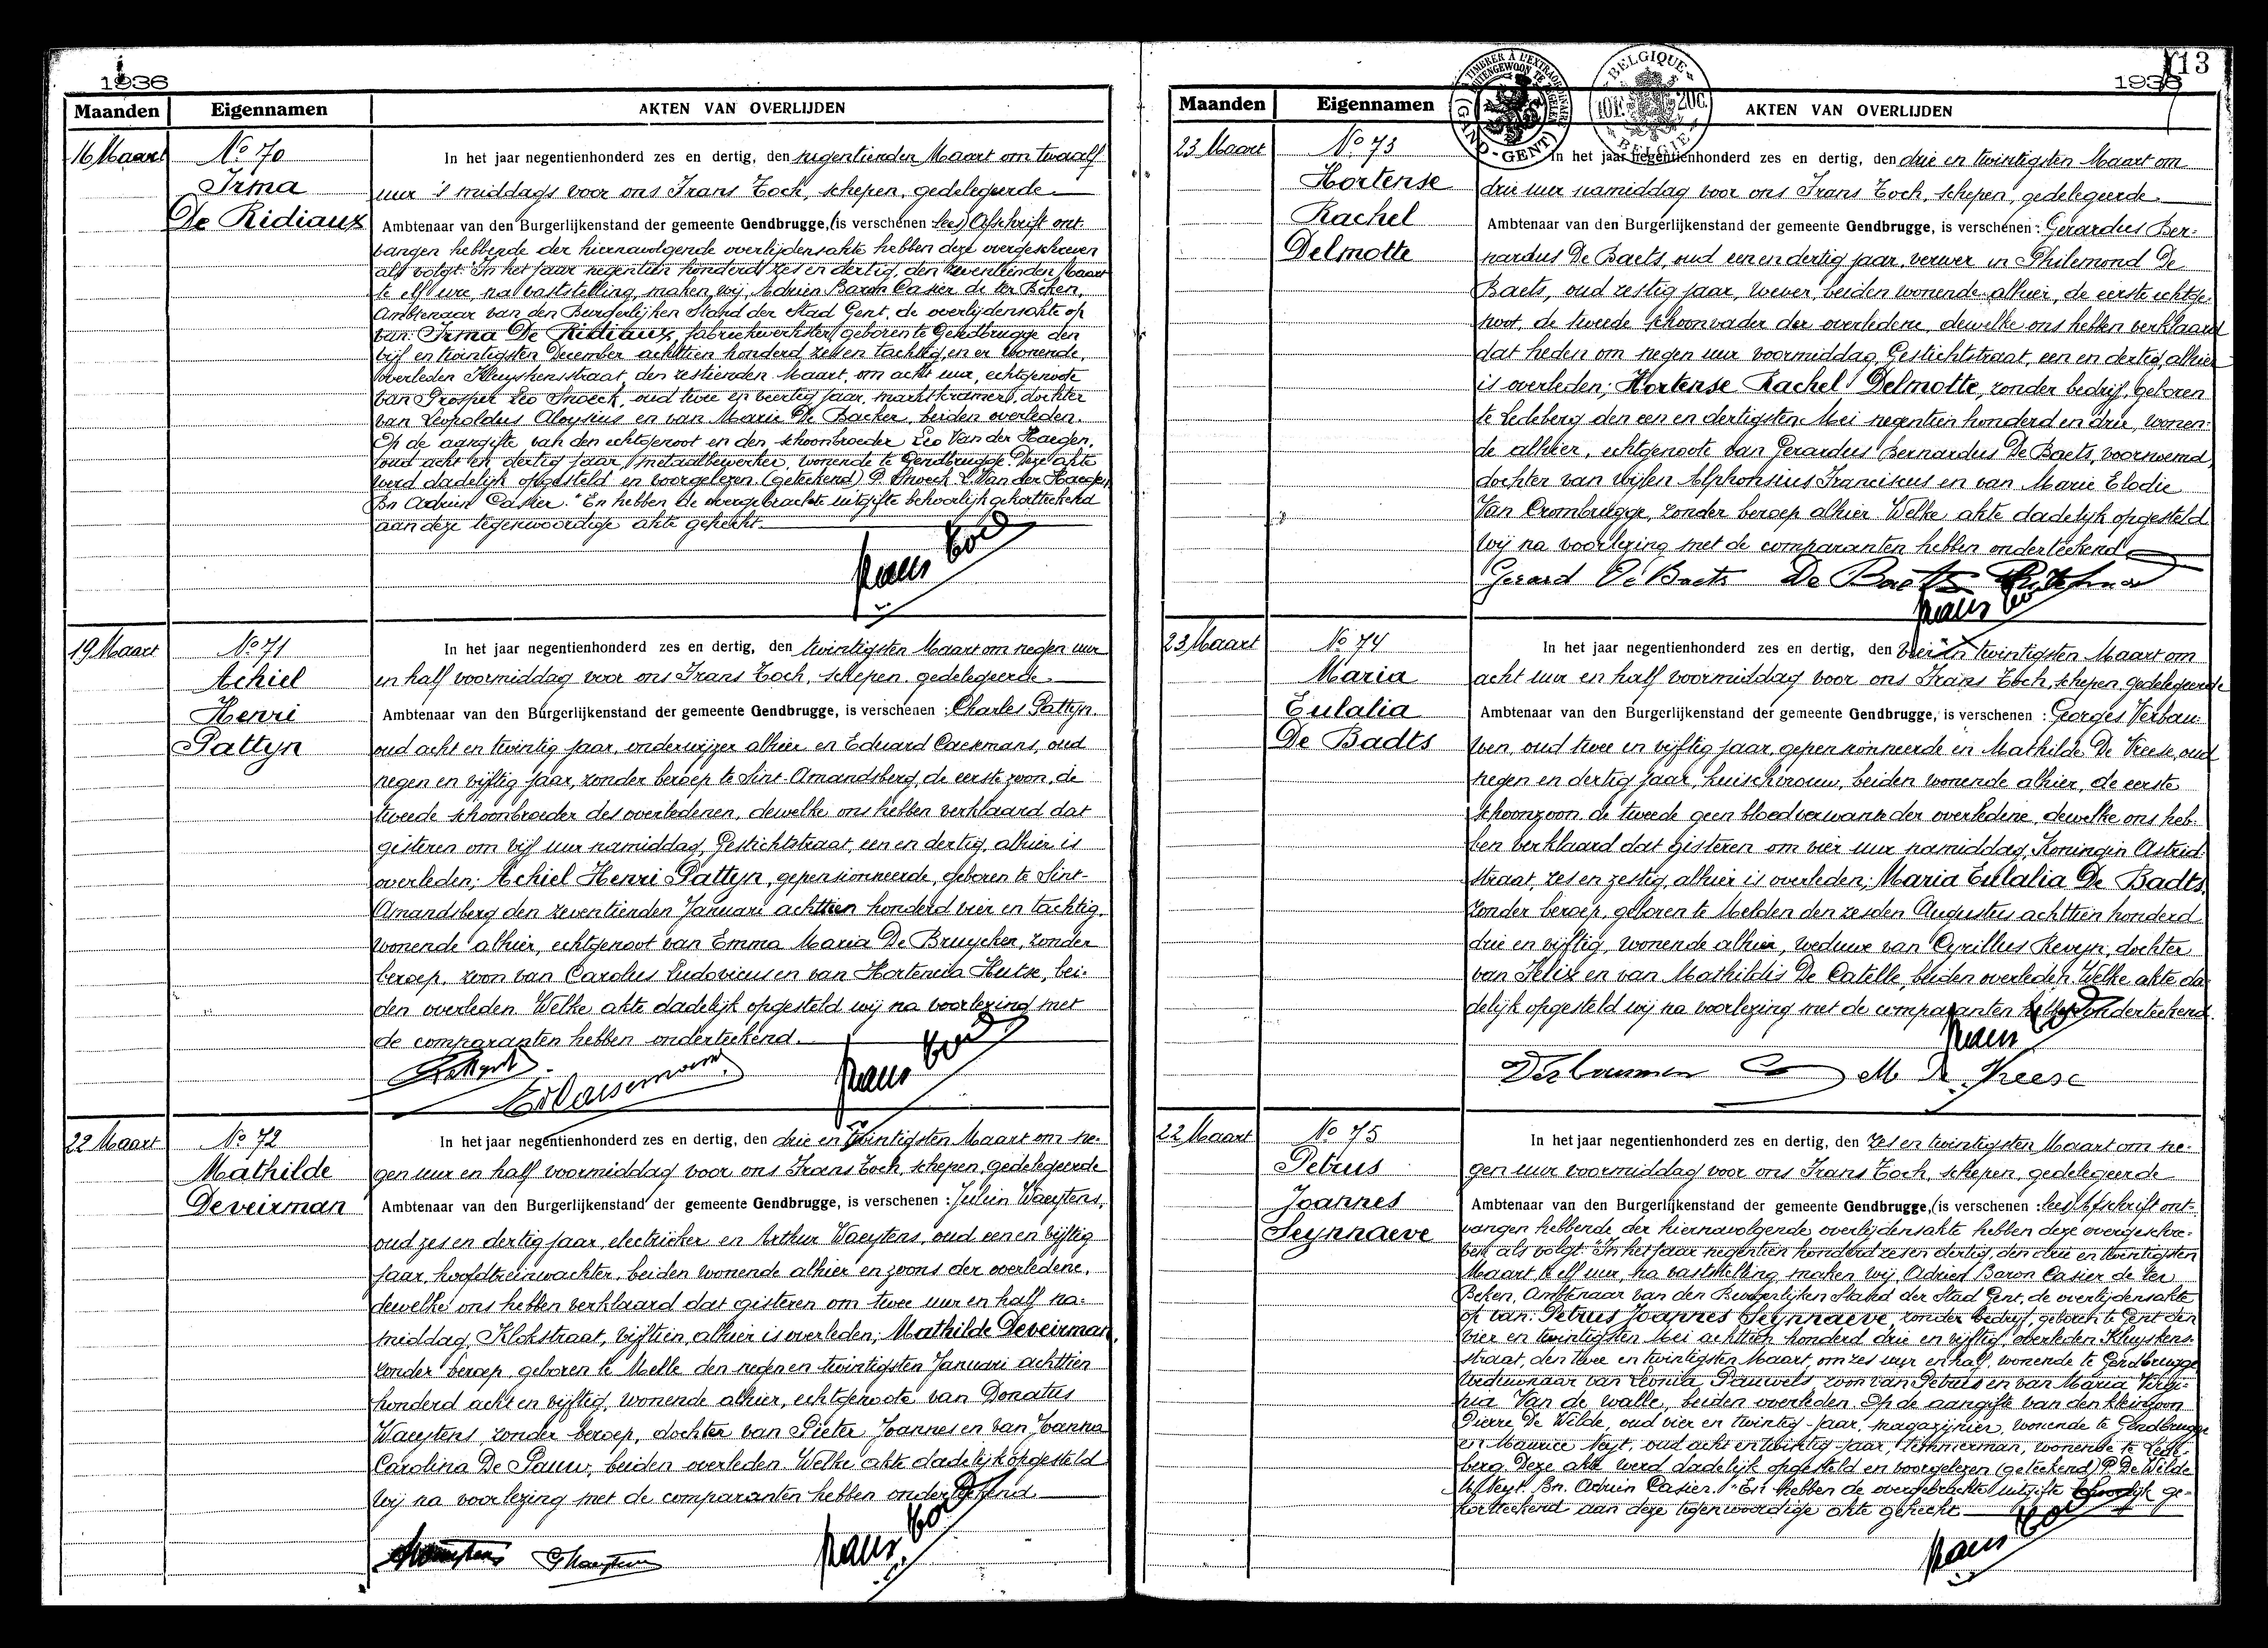 1936
Maanden Eigennamen AKTEN VAN OVERLIJDEN
16 Maart
No 70
Irma
De Ridiaux
In het jaar negentienhonderd zes en dertig, den negentienden Maart om twaalf
uur 's middags voor ons Frans Toch, schepen, gedelegeerde
Ambtenaar van den Burgerlijkenstand der gemeente Gendbrugge, (is verschenen lees) Afschrift ont-
vangen hebbende der hiernavolgende overlijdensakte hebben deze overgeschreven
als volgt: "In het jaar negentien honderd zes en dertig, den zeventienden Maart
te elf ure, na vaststelling, maken wij, Adrien Baron Casier de ter Beken,
Ambtenaar van den Burgerlijken Stand der Stad Gent, de overlijdensakte op
van: Irma De Ridiaux, fabriekwerkster, geboren te Gendbrugge den
vijf en twintigsten December achttien honderd zes en tachtig, en er wonende,
overleden Kluyskensstraat, den zestienden Maart, om acht uur, echtgenoote
van Prosper Leo Snoeck, oud twee en veertig jaar, marktkramer, dochter
van Leopoldus Aloysius en van Marie De Backer, beiden overleden.
Op de aangifte van den echtgenoot en den schoonbroeder Leo Van der Haegen,
oud acht en dertig jaar, metaalbewerker, wonende te Gendbrugge. Deze akte
werd dadelijk opgesteld en voorgelezen. (geteekend) P. Snoeck L. Van der Haegen
Bn Adrien Casier." En hebben de overgebrachte uitgifte behoorlijk gekortteekend
aan deze tegenwoordige akte gehecht.
Frans Toch
19 Maart
No 71
Achiel
Henri
Pattyn
In het jaar negentienhonderd zes en dertig, den twintigsten Maart om negen uur
en half voormiddag voor ons Frans Toch, schepen, gedelegeerde
Ambtenaar van den Burgerlijkenstand der gemeente Gendbrugge, is verschenen : Charles Pattyn
oud acht en twintig jaar, onderwijzer alhier en Eduard Caekmans, oud
negen en vijftig jaar, zonder beroep te Sint-Amandsberg, de eerste zoon, de
tweede schoonbroeder des overledenen, dewelke ons hebben verklaard dat
gisteren om vijf uur namiddag, Gestichtstraat, een en dertig, alhier is
overleden; Achiel Henri Pattyn, gepensionneerde, geboren te Sint-
Amandsberg den zeventienden Januari achttien honderd vier en tachtig,
wonende alhier, echtgenoot van Emma Maria De Bruycker, zonder
beroep, zoon van Carolus Ludovicus en van Hortencia Hutse, bei-
den overleden. Welke akte dadelijk opgesteld wij na voorlezing met
de comparanten hebben onderteekend.
Frans Toch
22 Maart
No 72
Mathilde
Deveirman
In het jaar negentienhonderd zes en dertig, den drie en twintigsten Maart om ne-
gen uur en half voormiddag voor ons Frans Toch, schepen, gedelegeerde
Ambtenaar van den Burgerlijkenstand der gemeente Gendbrugge, is verschenen : Julien Waeytens,
oud zes en dertig jaar, electrieker en Arthur Waeytens, oud een en vijftig
jaar, hoofdtreinwachter, beiden wonende alhier en zoons der overledene,
dewelke ons hebben verklaard dat gisteren om twee uur en half na-
middag, Klokstraat, vijftien, alhier is overleden; Mathilde Deveirman,
zonder beroep, geboren te Melle den negen en twintigsten Januari achttien
honderd acht en vijftig, wonende alhier, echtgenoote van Donatus
Waeytens, zonder beroep, dochter van Pieter Joannes en van Joanna
Carolina De Pauw, beiden overleden. Welke akte dadelijk opgesteld
wij na voorlezing met de comparanten hebben onderteekend
Frans Toch
113
1936
TIMBRER À L'EXTRAORDINAIRE BUITENGEWOON TE ZEGELEN (GAND-GENT)
BELGIQUE 10F. 20C. BELGIE
Maanden Eigennamen AKTEN VAN OVERLIJDEN
23 Maart
No 73
Hortense
Rachel
Delmotte
In het jaar negentienhonderd zes en dertig, den drie en twintigsten Maart om
drie uur namiddag voor ons Frans Toch, schepen, gedelegeerde
Ambtenaar van den Burgerlijkenstand der gemeente Gendbrugge, is verschenen : Gerardus Ber-
nardus De Baets, oud een en dertig jaar, verwer en Philemond De
Baets, oud zestig jaar, wever, beiden wonende alhier, de eerste echtge-
noot, de tweede schoonvader der overledene, dewelke ons hebben verklaard
dat heden om negen uur voormiddag, Gestichtstraat, een en dertig, alhier
is overleden; Hortense Rachel Delmotte, zonder bedrijf, geboren
te Ledeberg den een en dertigsten Mei negentien honderd en drie, wonen-
de alhier, echtgenoote van Gerardus Bernardus De Baets, voornoemd,
dochter van wijlen Alphonsius Franciscus en van Marie Elodie
Van Crombrugge, zonder beroep alhier. Welke akte dadelijk opgesteld
wij na voorlezing met de comparanten hebben onderteekend
Gerard De Baets De Baets Philemond
Frans Toch
23 Maart
No 74
Maria
Eulalia
De Badts
In het jaar negentienhonderd zes en dertig, den vier en twintigsten Maart om
acht uur en half voormiddag voor ons Frans Toch, schepen, gedelegeerde
Ambtenaar van den Burgerlijkenstand der gemeente Gendbrugge, is verschenen : Georges Verbau-
wen, oud twee en vijftig jaar, gepensionneerde en Mathilde De Vreese, oud
negen en dertig jaar, huischvrouw, beiden wonende alhier, de eerste
schoonzoon, de tweede geen bloedverwante der overledene, dewelke ons heb-
ben verklaard dat gisteren om vier uur namiddag, Koningin Astrid-
straat, zes en zestig, alhier is overleden; Maria Eulalia De Badts,
zonder beroep, geboren te Melden den zesden Augustus achttien honderd
drie en vijftig, wonende alhier, weduwe van Cyrillus Revyn, dochter
van Felix en van Mathildis De Catelle, beiden overleden. Welke akte da-
delijk opgesteld wij na voorlezing met de comparanten hebben onderteekend.
Frans Toch
Verbauwen G M. De Vreese
22 Maart
No 75
Petrus
Joannes
Seynnaeve
In het jaar negentienhonderd zes en dertig, den zes en twintigsten Maart om ne-
gen uur voormiddag voor ons Frans Toch, schepen, gedelegeerde
Ambtenaar van den Burgerlijkenstand der gemeente Gendbrugge, (is verschenen : lees) Afschrift ont-
vangen hebbende der hiernavolgende overlijdensakte hebben deze overgeschre-
ven als volgt: "In het jaar negentien honderd zes en dertig, den drie en twintigsten
Maart, te elf uur, na vaststelling, maken wij, Adrien Baron Casier de ter
Beken, Ambtenaar van den Burgerlijken Stand der Stad Gent, de overlijdensakte
op van: Petrus Joannes Seynnaeve, zonder bedrijf, geboren te Gent den
vier en twintigsten Mei achttien honderd drie en vijftig, overleden Kluyskens-
straat, den twee en twintigsten Maart, om zes uur en half, wonende te Gendbrugge
weduwnaar van Leonia Pauwels, zoon van Petrus en van Maria Virgi-
nia Van de walle, beiden overleden. Op de aangifte van den kleinzoon
Pierre De Wilde, oud vier en twintig jaar, magazijnier, wonende te Gendbrugge
en Maurice Neyt, oud acht en twintig jaar, timmerman, wonende te Lede-
berg. Deze akte werd dadelijk opgesteld en voorgelezen (geteekend) P. De Wilde
M. Neyt. Bn. Adrien Casier." En hebben de overgebrachte uitgifte behoorlijk ge-
kortteekend aan deze tegenwoordige akte gehecht
Frans Toch